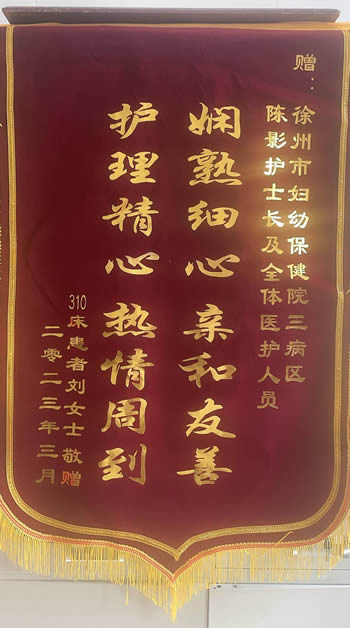 赠：
徐州市妇幼保健院三病区
陈影护士长及全体医护人员
娴熟细心 亲和友善
护理精心 热情周到
310床患者刘女士 敬赠
二零二三年三月